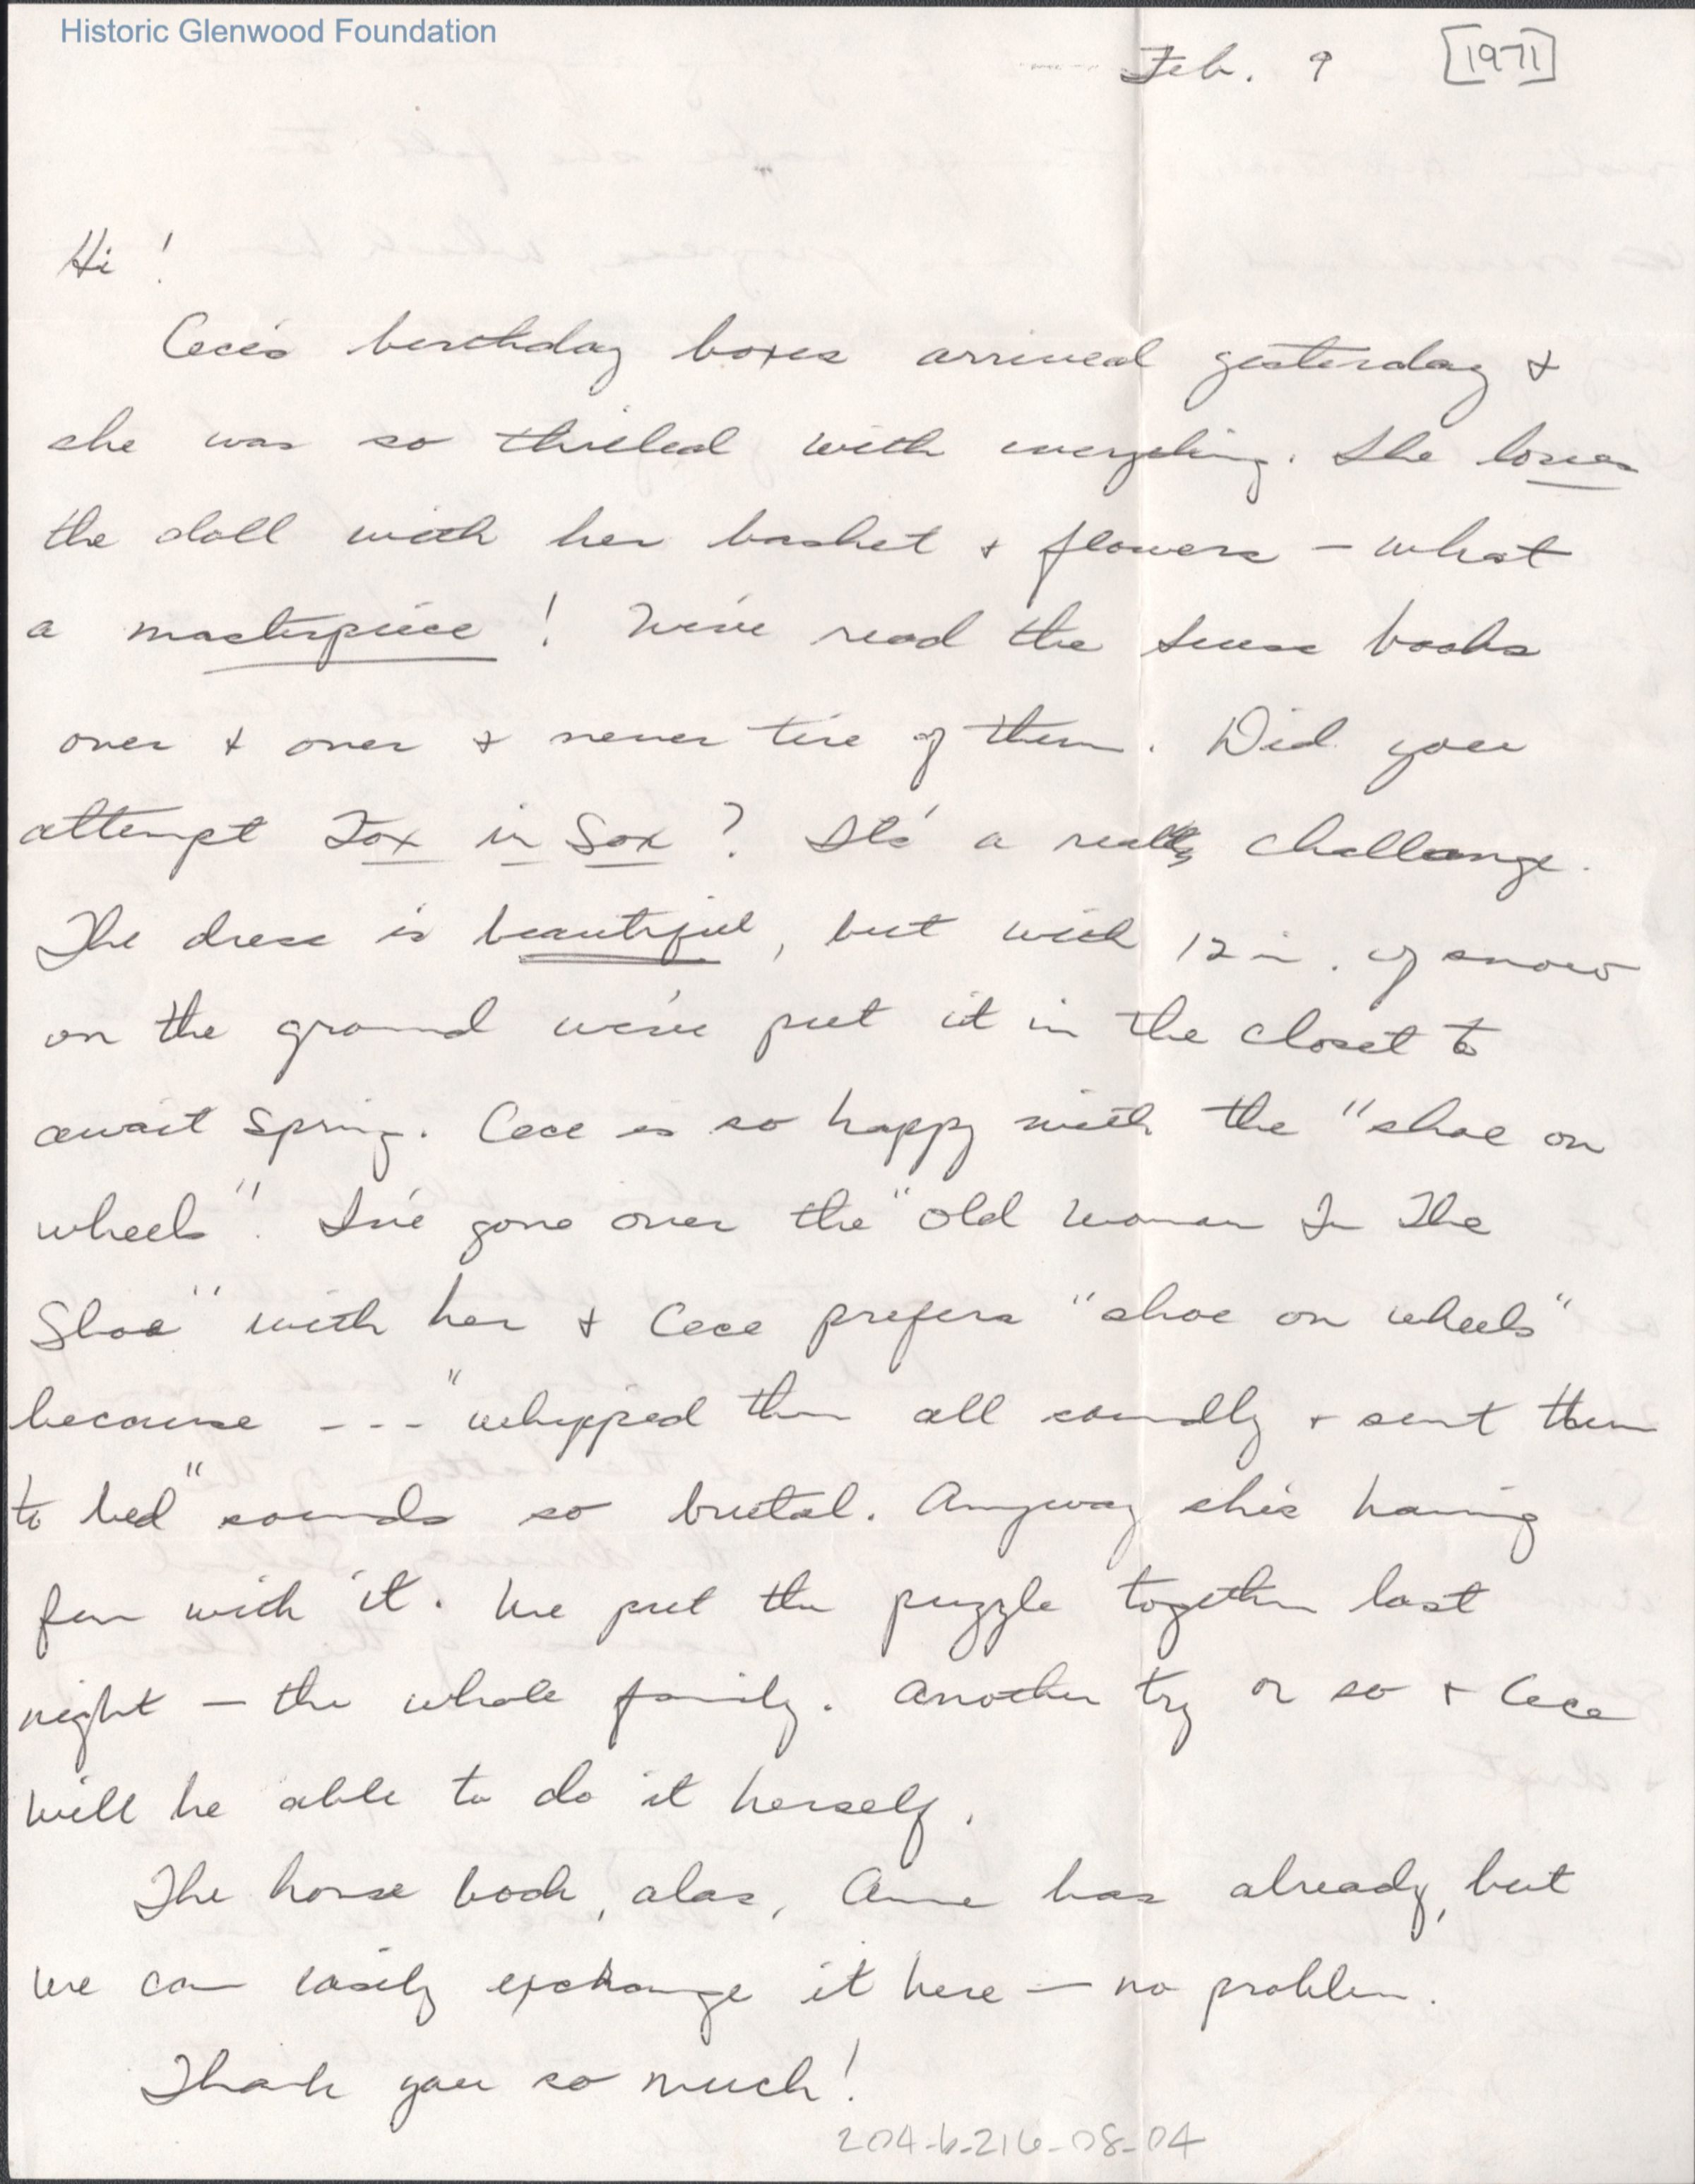 Historic Glenwood Foundation
Feb. 9 [1971]
Hi!
Cece's birthday boxes arrived yesterday &
she was so thrilled with everything. She loves
the doll with her basket & flowers – what
a masterpiece! We've read the Seuss books
over & over & never tire of them. Did you
attempt Fox in Sox? It's a real challange.
The dress is beautiful, but with 12 in. of snow
on the ground we've put it in the closet to
await Spring. Cece is so happy with the "shoe on
wheels". I've gone over the "Old Woman In The
Shoe" with her & Cece prefers "shoe on wheels"
because --- "whipped them all soundly & sent them
to bed" sounds so brutal. Anyway she's having
fun with it. We put the puzzle together last
night – the whole family. Another try or so & Cece
will be able to do it herself.
The horse book, alas, Anne has already, but
we can easily exchange it here – no problem.
Thank you so much!
204-b-216-08-04